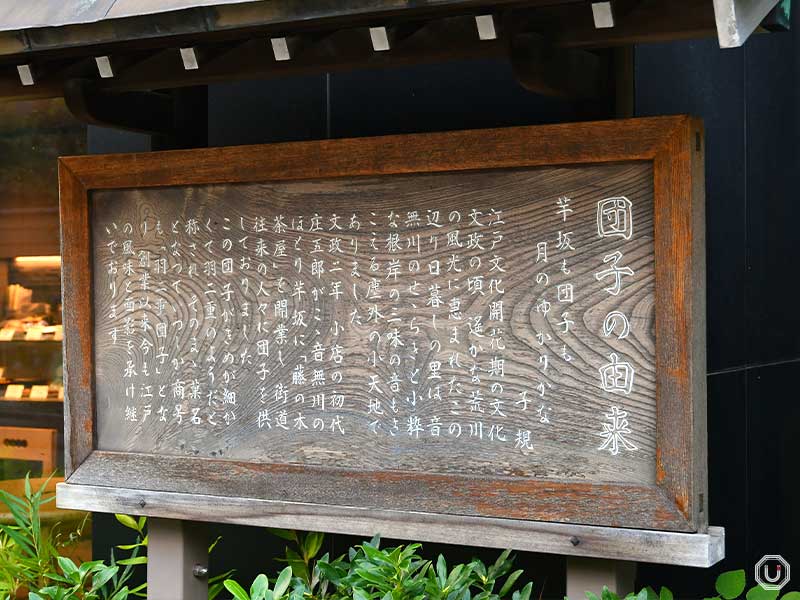 団子の由来
芋坂も団子も
月のゆかりかな
子規
江戸文化開花期の文化
文政の頃、遥かな荒川
の風光に恵まれたこの
辺り日暮しの里は、音
無川のせゝらぎと小粋
な根岸の三味の音もき
こえる塵外の小天地で
ありました
文政二年、小店の初代
庄五郎がこゝ音無川の
ほとり芋坂に「藤の木
茶屋」を開業し、街道
往来の人々に団子を供
しておりました
この団子がきめが細か
くて羽二重のようだと
称され、そのまゝ菓名
となって、いつしか商号
も「羽二重団子」とな
り、創業以来今も江戸
の風味と面影を承け継
いでおります